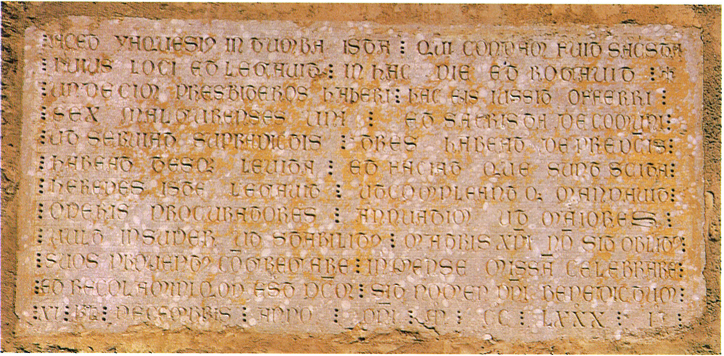 IACET VAQUESI9 IN TUMBA ISTA : QUI CONDAM FUIT SACSTA
HUIUS LOCI ET LEGAVIT : IN HAC DIE ET ROGAVIT :
UNDECIM PRESBITEROS HABERI : HAC EIS IUSSIT OFFERRI :
SEX MALGURENSES UINI : ET SACRISTA DE COMUNI :
UT SERUIAT SUPREDICTIS : TRES HABEAT DE PREDCIS :
HABEAT TESQ LEUITA : ET FACIAT QUE SUNT SCITA
HEREDES ISTE LEGAUIT : UT COMPLEANT Q MANDAUIT :
OPERIS PROCURATORES : ANNUATIM UT MAIORES :
UULT INSUPER UT STABILIT9 : MATRIS XPI NO SIT OBLIT9
SUOS CONGREGARE : IN MENSE MISSA CELEBRARE
ET RECOLAM EST DCM : SIT NOMEN DNI BENEDICTUM
VI DECEMBRIS ANNO : DNI M : CC : LXXX : II :